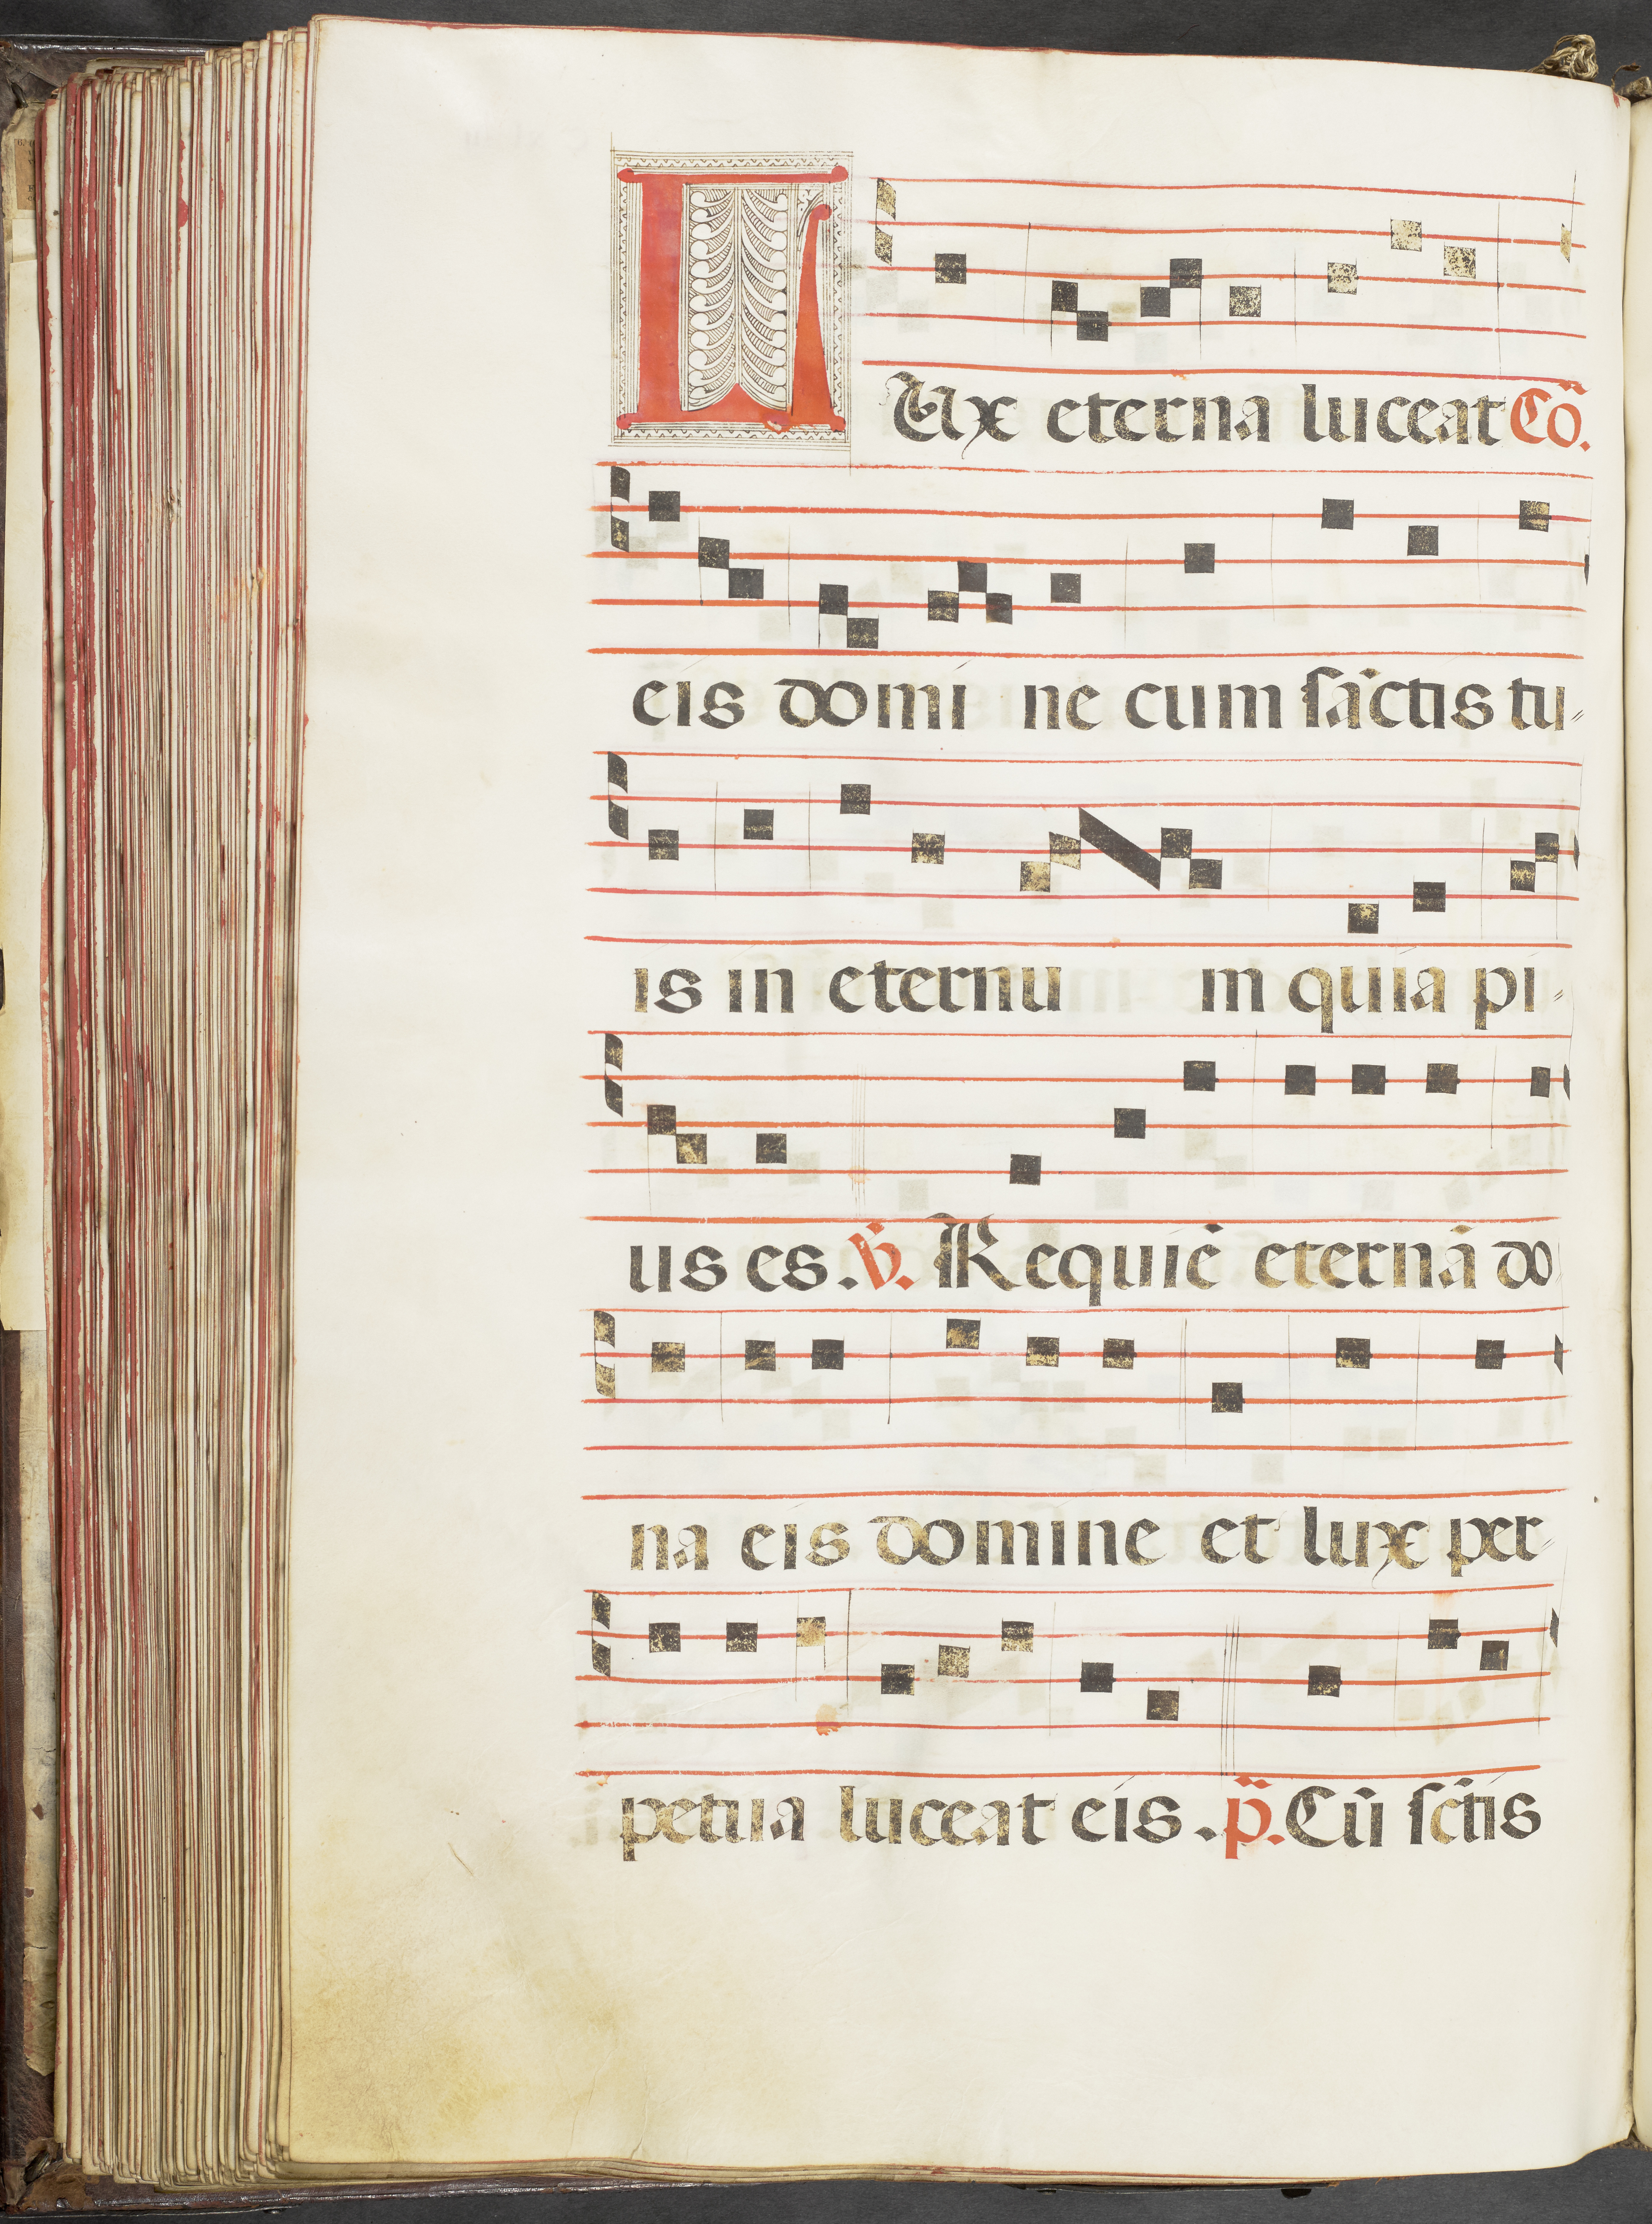 LUx eterna luceat Cõ.
eis domi ne cum sãctis tu=
is in eternu m quia pi=
us es. ℣. Requiẽ eternã do
na eis domine et lux per=
petua luceat eis. p̃. Cũ sc̃tis